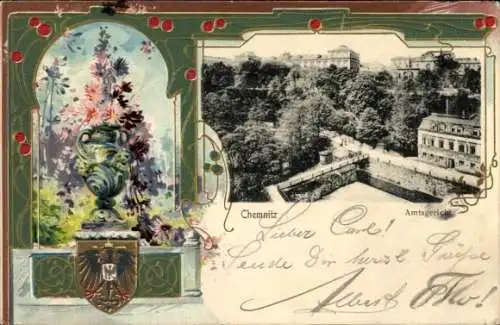 Chemnitz Amtsgericht
Lieber Carl!
Sende Dir herzl. Grüße
Albert